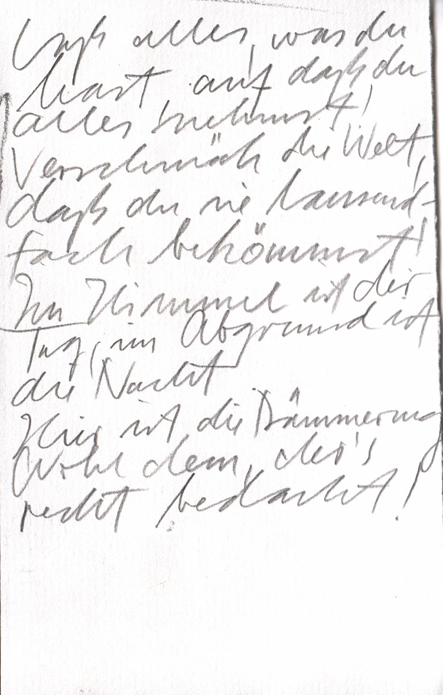 Laß alles, was du
hast auf daß du
alles nehmst!
Verschmäh die Welt,
daß du sie tausend-
fach bekömmst!
Im Himmel ist der
Tag, im Abgrund ist
die Nacht
Hier ist die Dämmerung
Wohl dem, der's
recht bedacht!